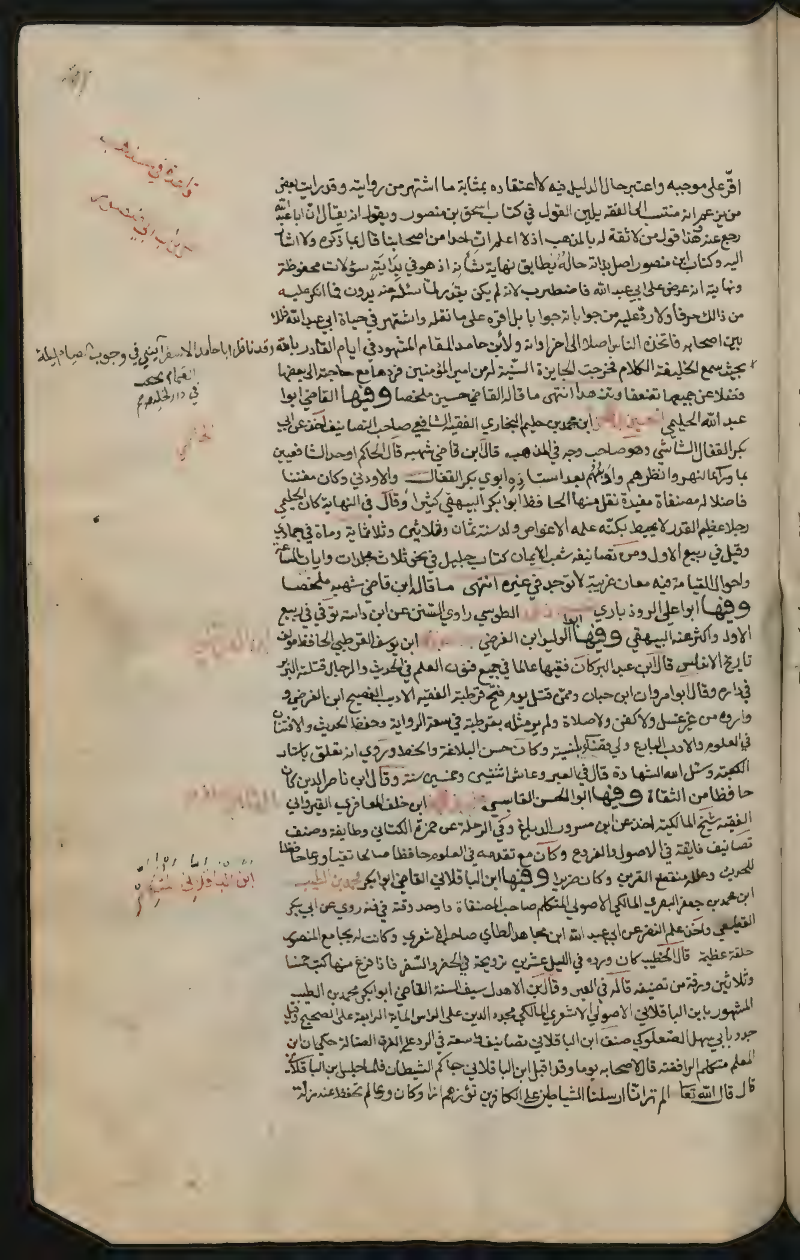 اقرّ على موجبه واعتبر حال الدليل فيه لاعتقاده بمثابة ما اشتهر من روايته وقد رايت بعض
من يزعم انه منتسب الى الفقه يلين القول في كتاب اسحق بن منصور ويقول انه يقال انّ ابا عبد الله
رجع عنه وهذا قول من لا ثقة له بالمذهب اذ لا اعلم ان احدا من اصحابنا قال بما ذكره ولا اشار
اليه وكتاب ابن منصور اصل بذاته حاله يطابق نهاية شأنه اذ هو في بدايته سؤلات محفوظة
ونهايته انه عرض على ابي عبد الله فاضطرب لانه لم يكن يقدر لما سئله عنه يدون فما انكر عليه
من ذالك حرفا ولا رد عليه من جواباته جوابا بل اقره على ما نقله واشتهر في حياة ابي عبد الله ذلك
بين اصحابه فاتخذه الناس اصلا الى اخر اوانه ولابن حامد المقام المشهود في ايام القادر بالله وقد ناظر ابا حامد الاسفرايني في وجوب الصيام ليلة
الغمام
في دار الخلافة
بحيث سمع الخليفة الكلام فخرجت الجايزة السنية له من امير المؤمنين فردها مع حاجته الى بعضها
فضلا عن جميعها تعففا وتزهدا انتهى ما قاله القاضي حسين ملخصا وفيها القاضي ابوا
عبد الله الحليمي الحسين بن الحسن ابن محمد بن حليم البخاري الفقيه الشافعي صاحب التصانيف اخذ عن ابي
بكر القفال الشاشي وهو صاحب وجه في المذهب قال ابن قاضي شهبه قال الحاكم اوحد الشافعيين
بما وراء النهر وانظرهم وادبهم بعد استاذه ابوي بكر القفال والاودني وكان مفننا
فاضلا له مصنفاة مفيدة نقل منها الحافظ ابوا بكر البيهقي كثيرا وقال في النهاية كان الحليمي
رجلا عظيم القدر لا يحيط بكنه علمه الا غواص ولد سنة ثمان وثلاثين وثلاثماية ومات في جمادي
وقيل في ربيع الاول ومن تصانيفه شعب الايمان كتاب جليل في نحو ثلاث مجلدات وايات الساعة
واحوال القيامة فيه معان غريبة لا توجد في غيره انتهى ما قاله ابن قاضي شهبه ملخصا
وفيها ابوا علي الروذباري الطوسي راوي السنن عن ابن داسه توفي في ربيع
الاول واكثر عنه البيهقي وفيها ابوا الوليد ابن الفرضي ابن يوسف القرطبي الحافظ مولف
تاريخ الاندلس قال ابن عبد البر كان فقيها عالما في جميع فنون العلم في الحديث والرجال قتلته البربر
في داره وقال ابوا مروان ابن حيان وممن قتل يوم فتح قرطبة الفقيه الاديب الفصيح ابن الفرضي و
واروه من غير غسل ولا كفن ولا صلاة ولم ير مثله بقرطبة في سعة الرواية وحفظ الحديث والافتنان
في العلوم والادب البارع ولي قضاء بلنسية وكان حسن البلاغة والخط وروي انه تعلق باستار
الكعبة وسئل الله الشهادة قال في العبر وعاش اثنتين وخمسين سنة وقال ابن ناصر الدين كان
حافظا من الثقاة وفيها ابوا الحسن القابسي ابن خلف المعافري القيرواني
الفقيه شيخ المالكية اخذ عن ابن مسرور الدباغ وفي الرحلة عن حمزة الكتاني وطايفة وصنف
تصانيف فايقة في الاصول والفروع وكان مع تقدمه في العلوم حافظا صالحا تقيا ورعا حافظا
للحديث وعلله منقطع القرين وكان ضريرا وفيها ابن الباقلاني القاضي ابوا بكر محمد بن الطيب
ابن محمد بن جعفر البصري المالكي الاصولي المتكلم صاحب المصنفاة واوحد وقته في فنه روي عن ابي بكر
القطيعي واخذ علم النظر عن ابي عبد الله ابن مجاهد الطاي صاحب الاشعري وكانت له بجامع المنصور
حلقة عظيمة قال الخطيب كان ورده في الليل عشرين ترويحة في الحضر والسفر فاذا فرغ منها كتب خمسا
وثلاثين ورقة من تصنيفه قاله في العبر وقال ابن الاهدل سيف السنة القاضي ابوا بكر محمد بن الطيب
المشهور بابن الباقلاني الاصولي الاشعري المالكي مجدد الدين على راس الماية الرابعة على الصحيح وقيل
جدد بابي سهل الصعلوكي صنف ابن الباقلاني تصانيف واسعة في الرد على الفرق الضالة حكي ان ابن
المعلم متكلم الرافضة قال لاصحابه يوما وقد اقبل ابن الباقلاني جاكم الشيطان فلما جلس ابن الباقلاني
قال قال الله تعا الم تر انا ارسلنا الشياطين على الكافرين تؤزهم ازا وكان ورعا لم تحفظ عنه زلة
قاعدة في مسئلة
كتاب ابن منصور
الحليمي
ابن الفرضي
القابسي
ابن الباقلاني